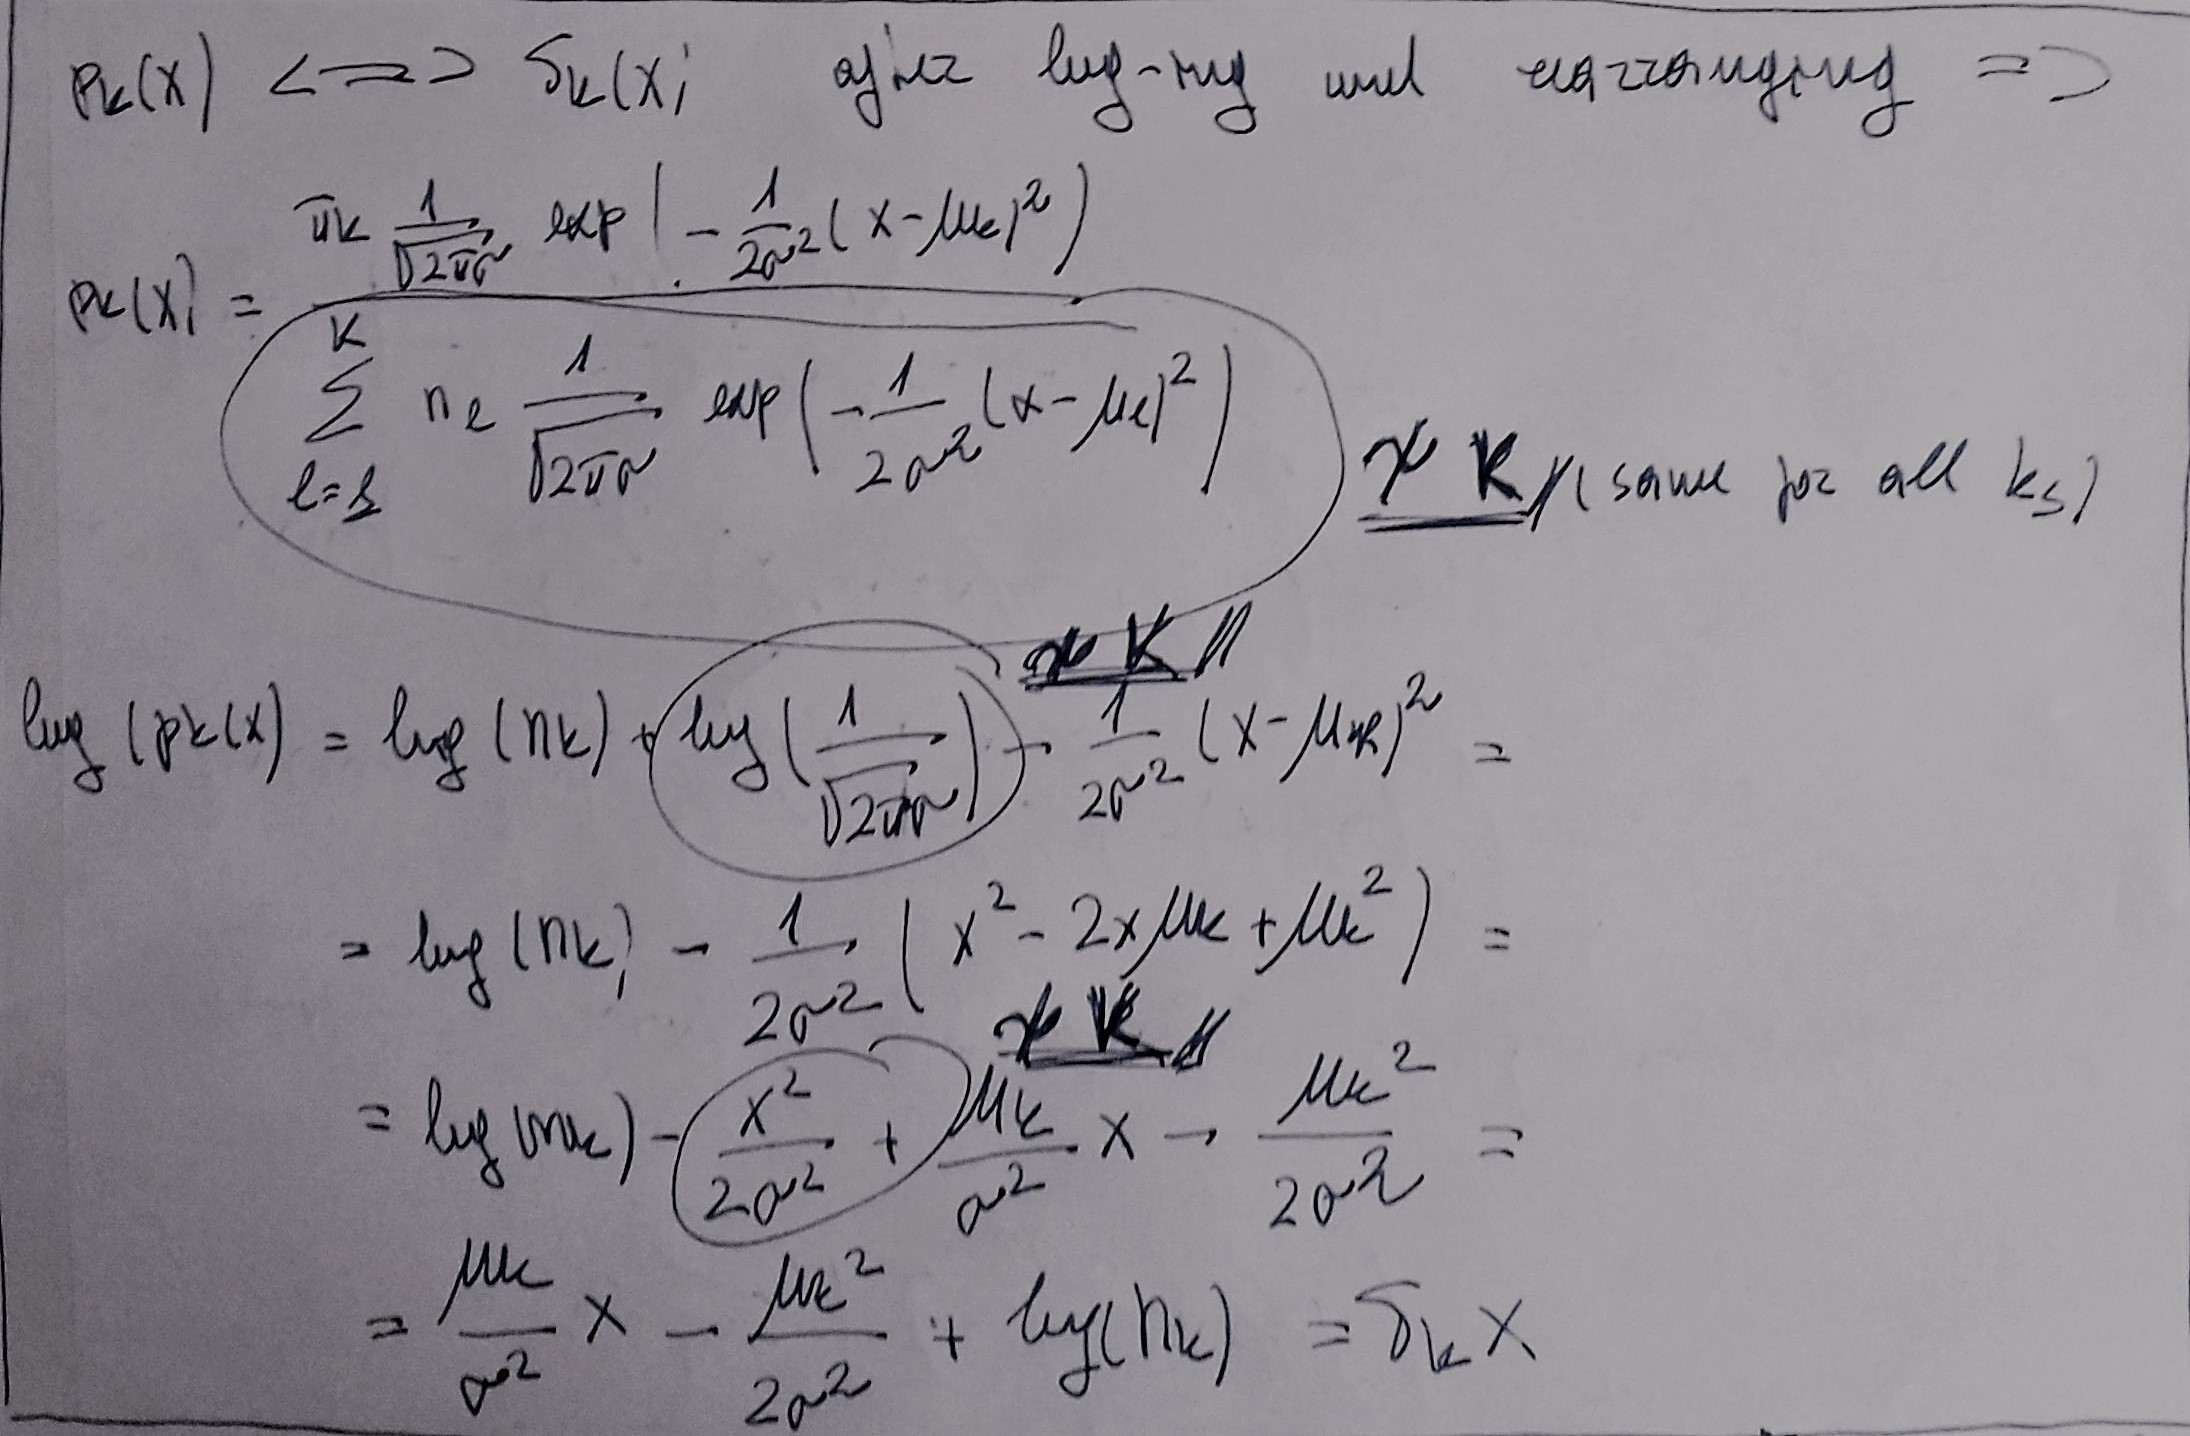 pk(x) <=> δk(x) after log-ing and rearranging =>
πk 1/√2πσ exp(-1/2σ²(x-μk)²)
pk(x) =
K
Σ πl 1/√2πσ exp(-1/2σ²(x-μl)²)
l=1
K // (same for all ks)
K //
log(pk(x) = log(πk) + log(1/√2πσ) - 1/2σ² (x-μk)² =
= log(πk) - 1/2σ² (x² - 2xμk + μk²) =
K //
= log(πk) - x²/2σ² + μk/σ² x - μk²/2σ² =
= μk/σ² x - μk²/2σ² + log(πk) = δk x